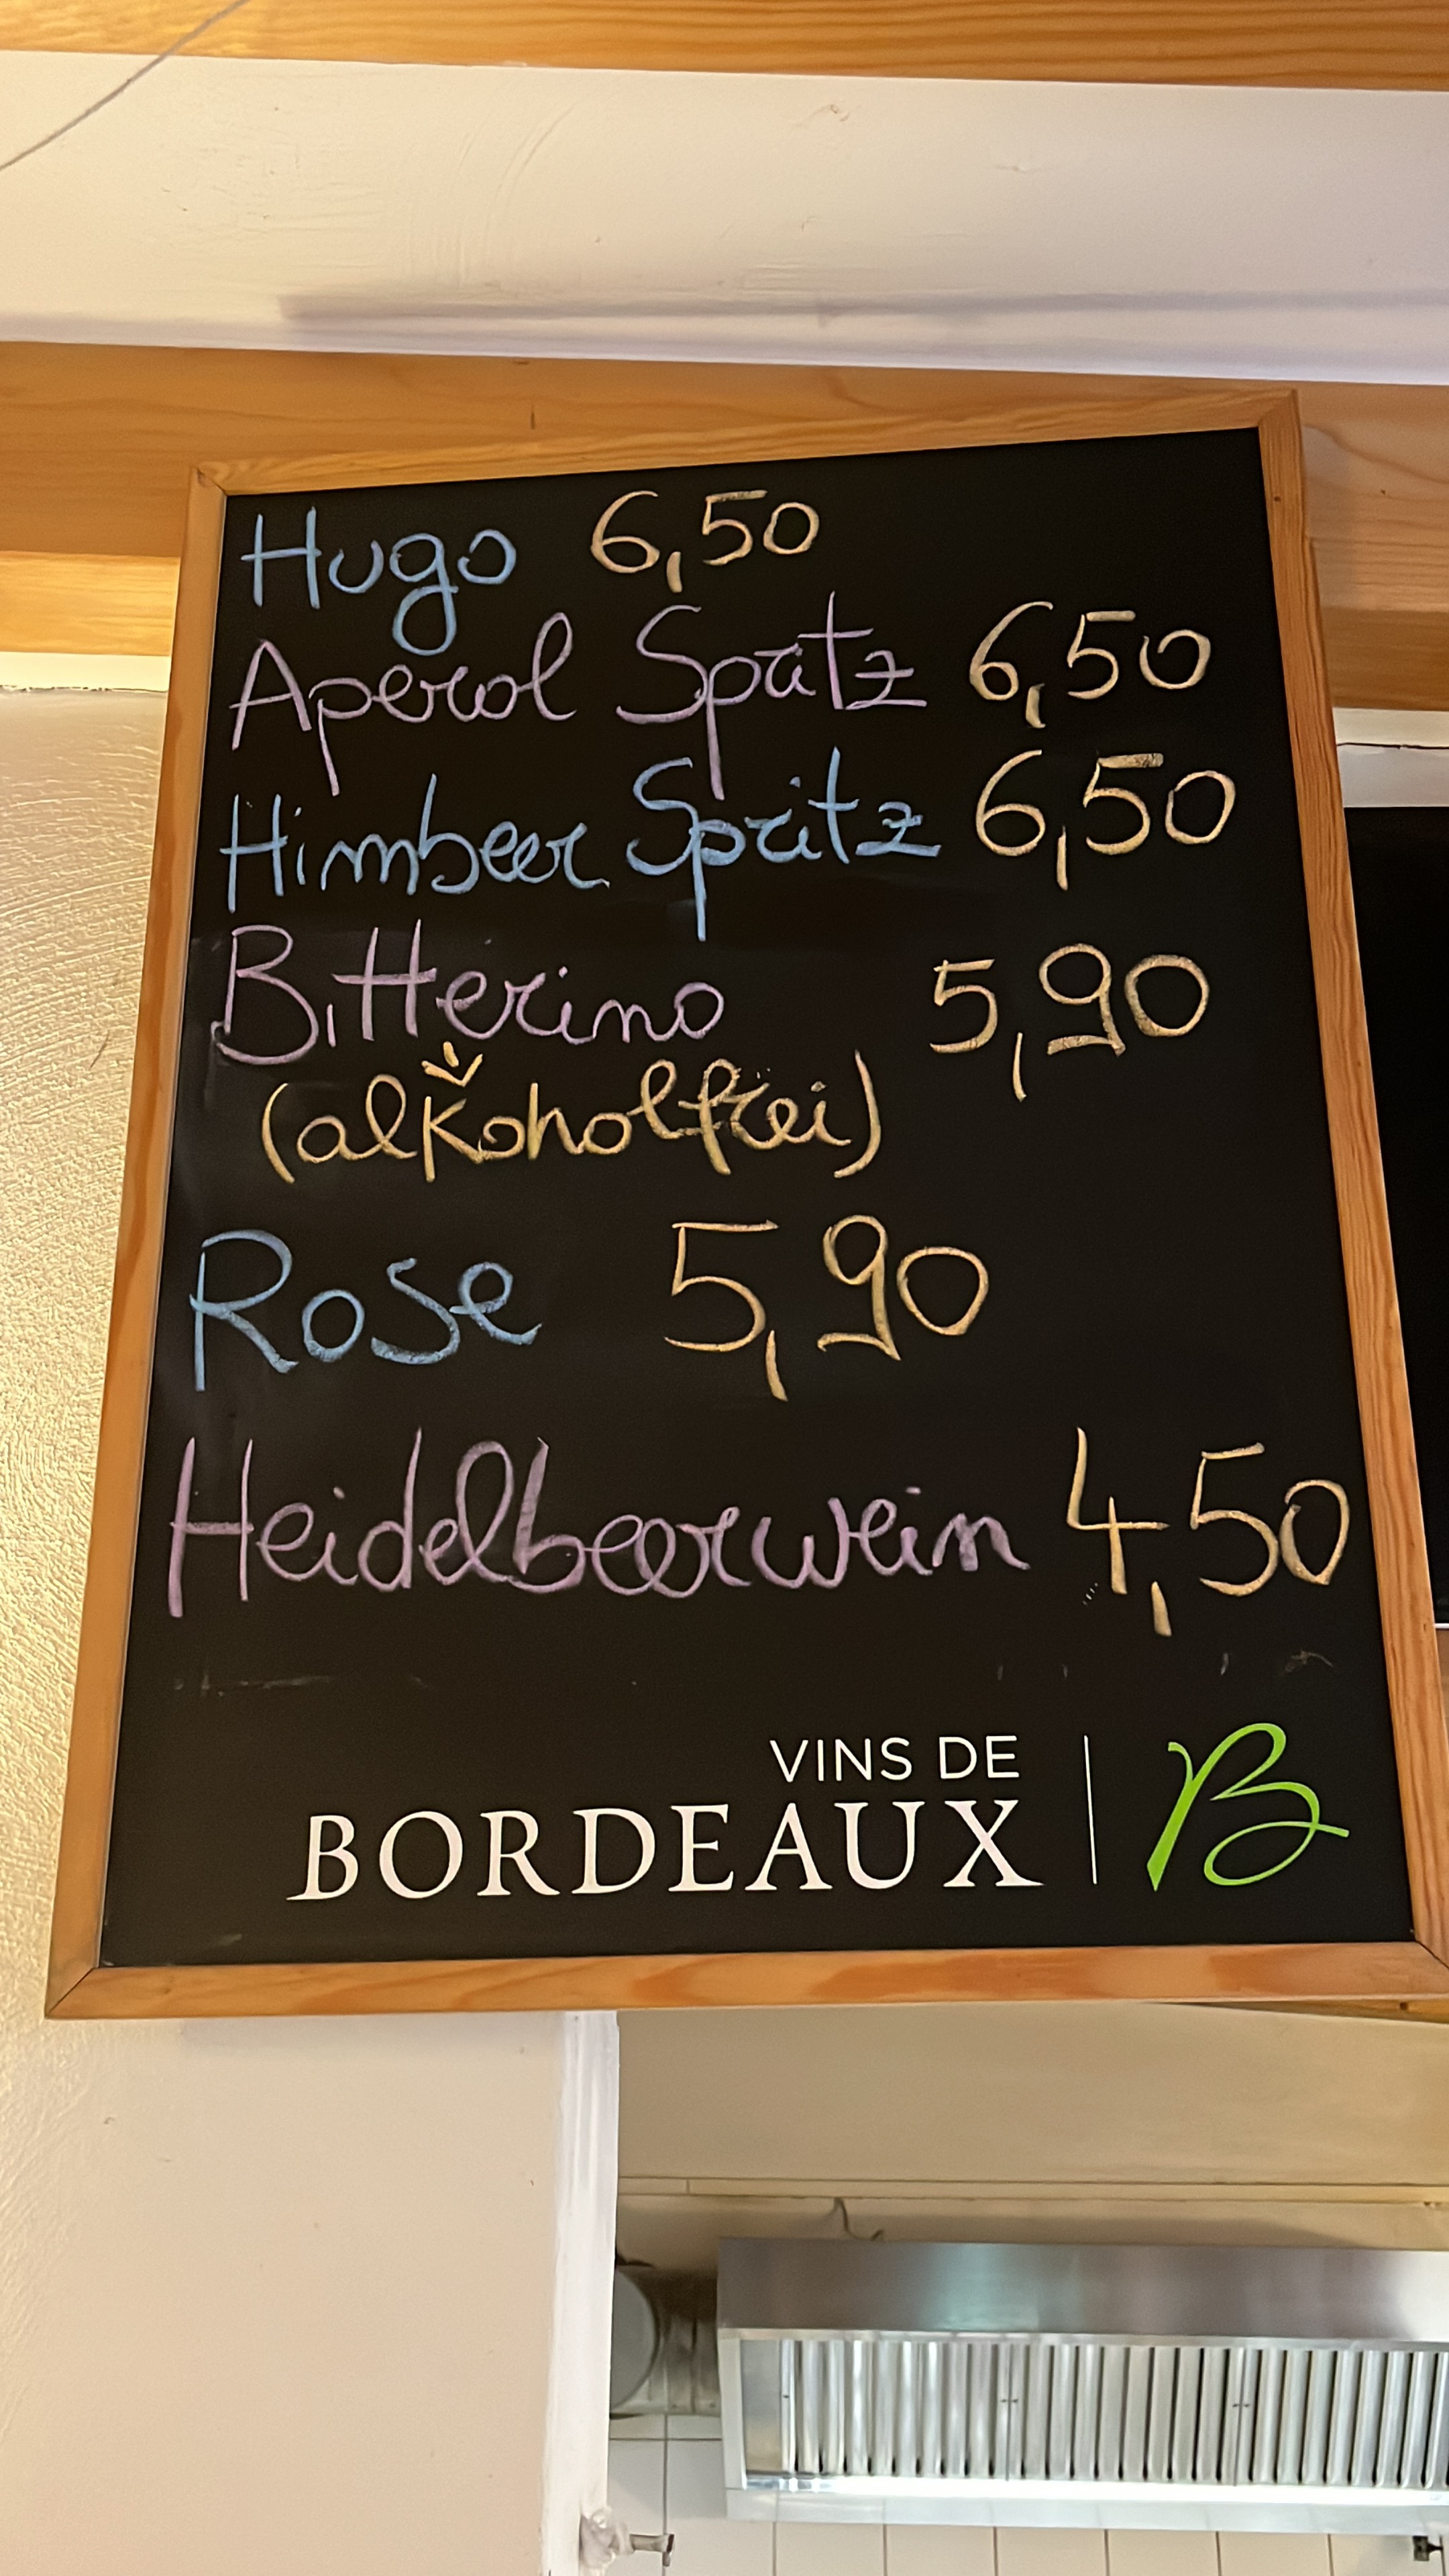 Hugo 6,50
Aperol Spritz 6,50
Himbeer Spritz 6,50
Bitterino 5,90
(alkoholfrei)
Rose 5,90
Heidelbeerwein 4,50
VINS DE
BORDEAUX
B